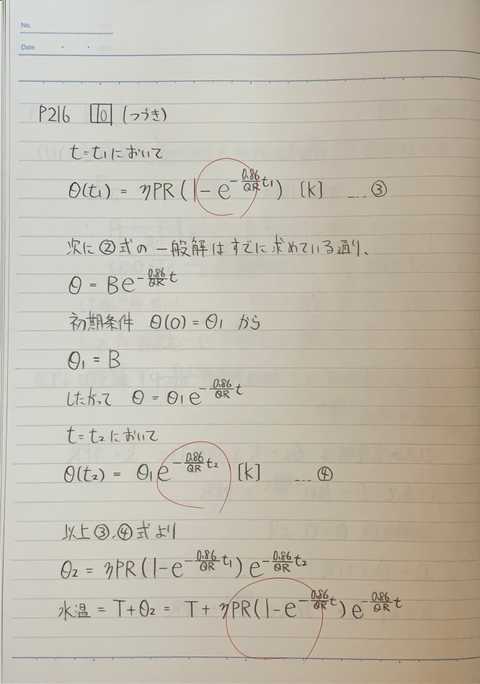 No.
Date
P216 10 (つづき)
t=t₁において
θ(t₁) = ηPR(1-e^{-\frac{0.86}{QR}t₁}) [K] … ③
次に②式の一般解はすでに求めている通り、
θ = Be^{-\frac{0.86}{QR}t}
初期条件 θ(0)=θ₁ から
θ₁ = B
したがって θ = θ₁e^{-\frac{0.86}{QR}t}
t=t₂において
θ(t₂) = θ₁e^{-\frac{0.86}{QR}t₂} [K] … ④
以上③,④式より
θ₂ = ηPR(1-e^{-\frac{0.86}{QR}t₁})e^{-\frac{0.86}{QR}t₂}
水温 = T+θ₂ = T+ηPR(1-e^{-\frac{0.86}{QR}t})e^{-\frac{0.86}{QR}t}